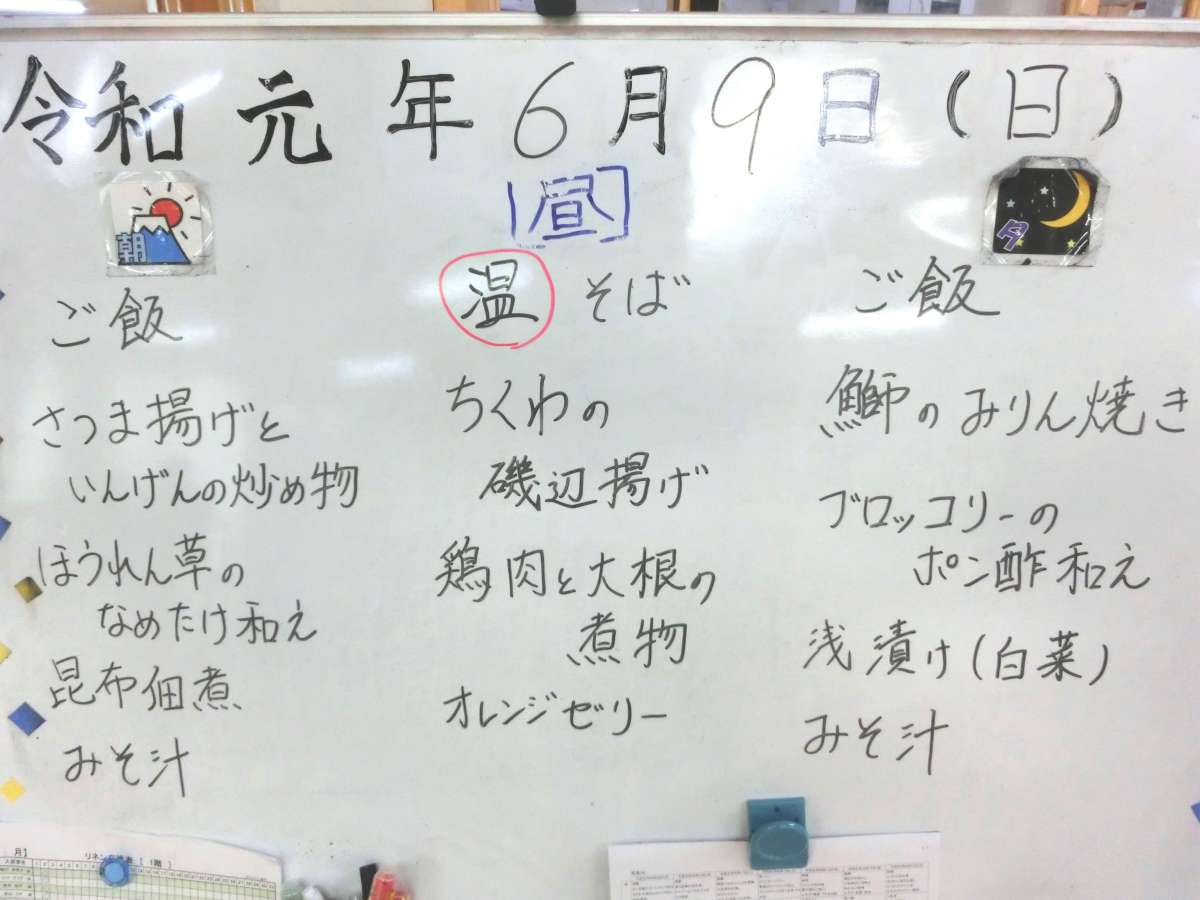 令和元年6月9日(日)
朝
ご飯
さつま揚げと
いんげんの炒め物
ほうれん草の
なめたけ和え
昆布佃煮
みそ汁
[昼]
温そば
ちくわの
磯辺揚げ
鶏肉と大根の
煮物
オレンジゼリー
夕
ご飯
鰤のみりん焼き
ブロッコリーの
ポン酢和え
浅漬け(白菜)
みそ汁
月】
[1階]